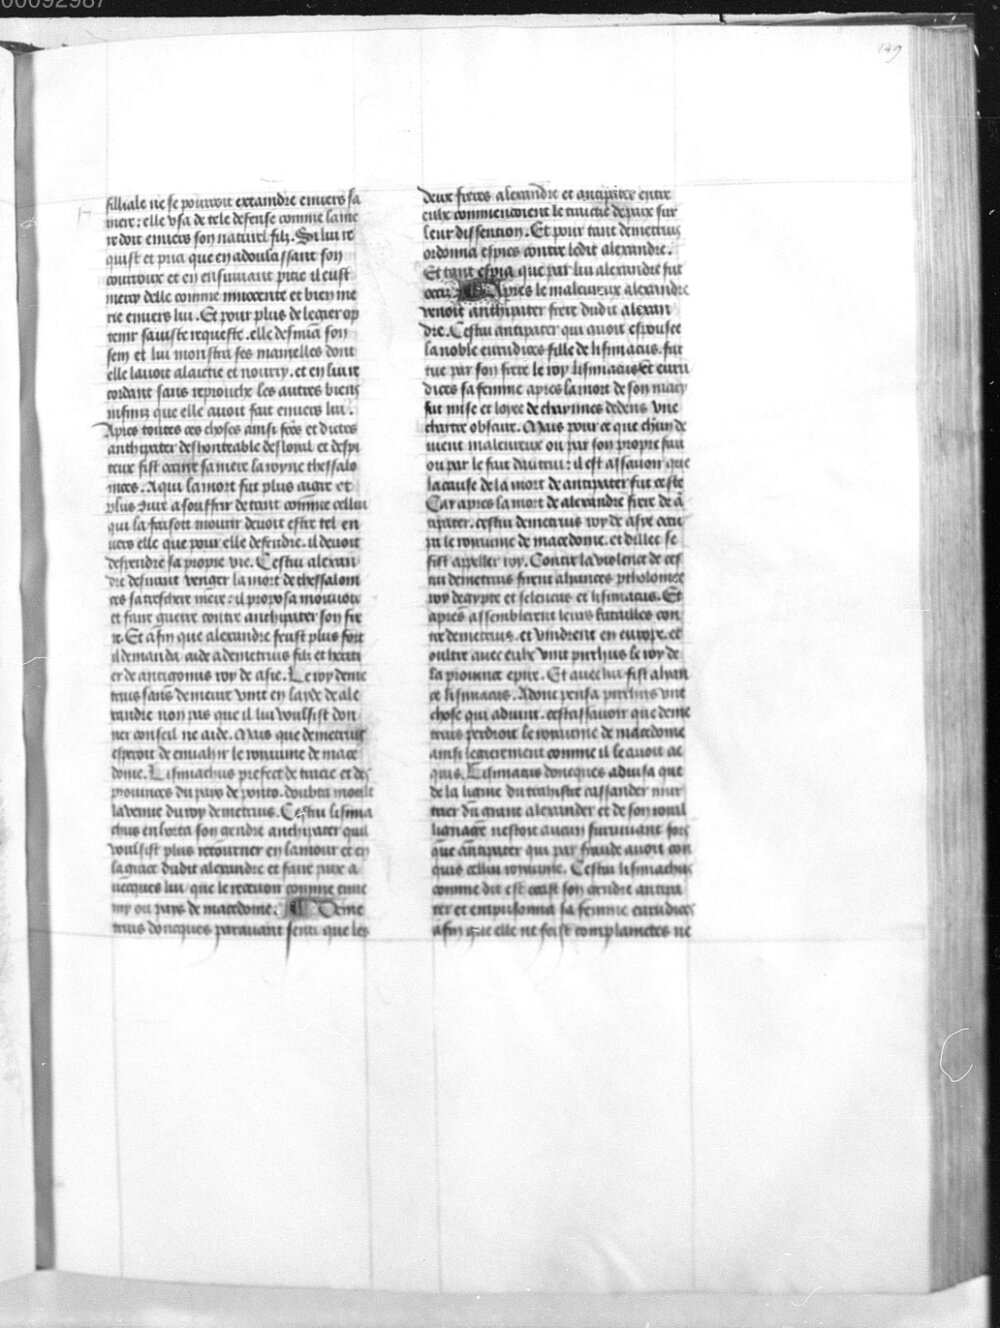 00092987
149
filliale ne se pouvoit extaindre envers sa
mere: elle usa de tele defense comme la me
re doit envers son naturel filz. Si lui re
quist et pria que en adoulcissant son
courroux et en ensuivant pitie il eust
mercy delle comme innocente et bien me
rie envers lui. Et pour plus de legier op
tenir sa juste requeste. elle desnua son
sein et lui monstra ses mamelles dont
elle lavoit alaictie et nourry. et en lui re
cordant sans reprouche les autres biens
infiniz que elle avoit fait envers lui.
Apres toutes ces choses ainsi fcês et dictes
anthipater deshonneable desloyal et despi
teux fist occire sa mere la royne thessalo
nices. A qui la mort fut plus aigre et
plus dure a souffrir de tant comme cellui
qui la faisoit mourir devoit estre tel en
vers elle que pour elle defendre. il devoit
despendre sa propre vie. Cestui alexan
dre desirant venger la mort de thessaloni
ces sa treschere mere: il proposa mouvoir
et faire guerre contre anthipater son fre
re. Et afin que alexandre feust plus fort
il demanda aide a demetrius filz et heriti
er de antigonus roy de asie. Le roy deme
trius sans demeure vint en layde de ale
xandre non pas que il lui voulsist don
ner conseil ne aide. Mais que demetrius
esperoit de envahir le royaume de mace
done. Lisimachus prefect de tracie et des
provinces du pays de ponto. doubta moult
la venue du roy demetrius. Cestui lisima
chus enhorta son gendre anthipater quil
voulsist plus retourner en lamour et en
la grace dudit alexandre et faire paix a
vecques lui que le recevoir comme enne
my ou pays de macedone. Deme
trius doncques paravant senti que les
deux freres alexandre et antipater entre
eulx commencoient le traictie de paix sur
leur dissention. Et pour tant demetrius
ordonna espies contre ledit alexandre.
Et tant espia que par lui alexandre fut
occis. Apres le maleureux alexandre
venoit anthipater frere dudit alexan
dre. Cestui antipater qui avoit espousee
la noble euridices fille de lisimacus. fut
tue par son frere le roy lisimacus et euri
dices sa femme apres la mort de son mary
fut mise et loyee de chaynnes dedens une
chartre obscure. Mais pour ce que chūn de
vient maleureux ou par son propre fait
ou par le fait dautrui: il est assavoir que
la cause de la mort de antipater fut ceste
Car apres la mort de alexandre frere de ā
tipater. cestui demetrius roy de asye occu
pa le royaume de macedone. et dillec se
fist appeller roy. Contre la violence de ces
tui demetrius firent aliances ptholomee
roy degypte et seleucus et lisimacus. Et
apres assemblerent leurs batailles con
tre demetrius. et vindrent en europe. et
oultre avec eulx vint pirrhus le roy de
la province epire. Et avec lui fist alyan
ce lisimacus. Adonc pensa pirrhus une
chose qui advint. cestassavoir que deme
trius perdroit le royaume de macedone
ainsi legierement comme il le avoit ac
quis. Lisimacus doncques advisa que
de la ligne du traihistre cassander mur
trier du grant alexander et de son royal
lignage nestoit aucun survivant fors
que antipater qui par fraude avoit con
quis cellui royaume. Cestui lisimachus
comme dit est occist son gendre antipa
ter et emprisonna sa femme euridices
afin que elle ne feist complainctes ne